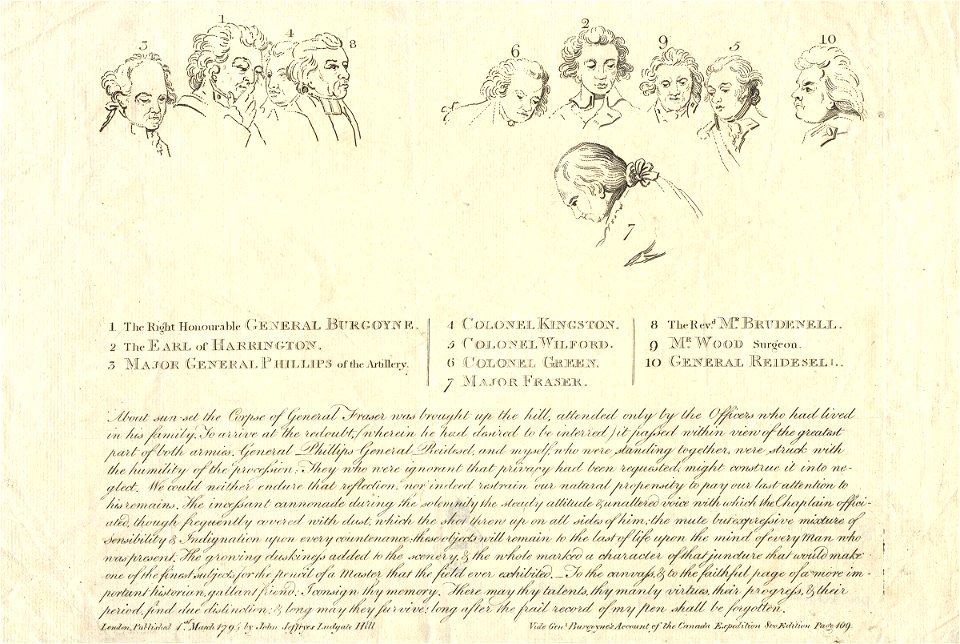 1
2
3 4 8 6 9 5 10
7
1 The Right Honourable GENERAL BURGOYNE.
2 The EARL of HARRINGTON.
3 MAJOR GENERAL PHILLIPS of the Artillery.
4 COLONEL KINGSTON.
5 COLONEL WILFORD.
6 COLONEL GREEN.
7 MAJOR FRASER.
8 The Rev.d Mr BRUDENELL.
9 Mr WOOD Surgeon.
10 GENERAL REIDESELL.
About sun-set the Corpse of General Fraser was brought up the hill, attended only by the Officers who had lived
in his family. To arrive at the redoubt, (wherein he had desired to be interred) it passed within view of the greatest
part of both armies. General Phillips General Reidesel, and myself who were standing together, were struck with
the humility of the procession: They who were ignorant that privacy had been requested, might construe it into ne-
glect. We could neither endure that reflection, nor indeed restrain our natural propensity to pay our last attention to
his remains. The incessant cannonade during the solemnity the steady attitude & unaltered voice with which the Chaplain offici-
ated, though frequently covered with dust, which the shot threw up on all sides of him; the mute but expressive mixture of
Sensibility & Indignation upon every countenance; these objects will remain to the last of life upon the mind of every Man who
was present. The growing duskiness added to the scenery, & the whole marked a character of that juncture that would make
one of the finest subjects for the pencil of a Master that the field ever exhibited. _ To the canvass, & to the faithful page of a more im-
portant historian, gallant friend: I consign thy memory. There may thy talents, thy manly virtues, their progress, & their
period, find due distinction; & long may they survive; long after the frail record of my pen shall be forgotten.
London, Published 1st March 1795 by John Jeffryes Ludgate Hill
Vide Genl Burgoyne's Account of the Canada Expedition 8vo Edition Page 169.